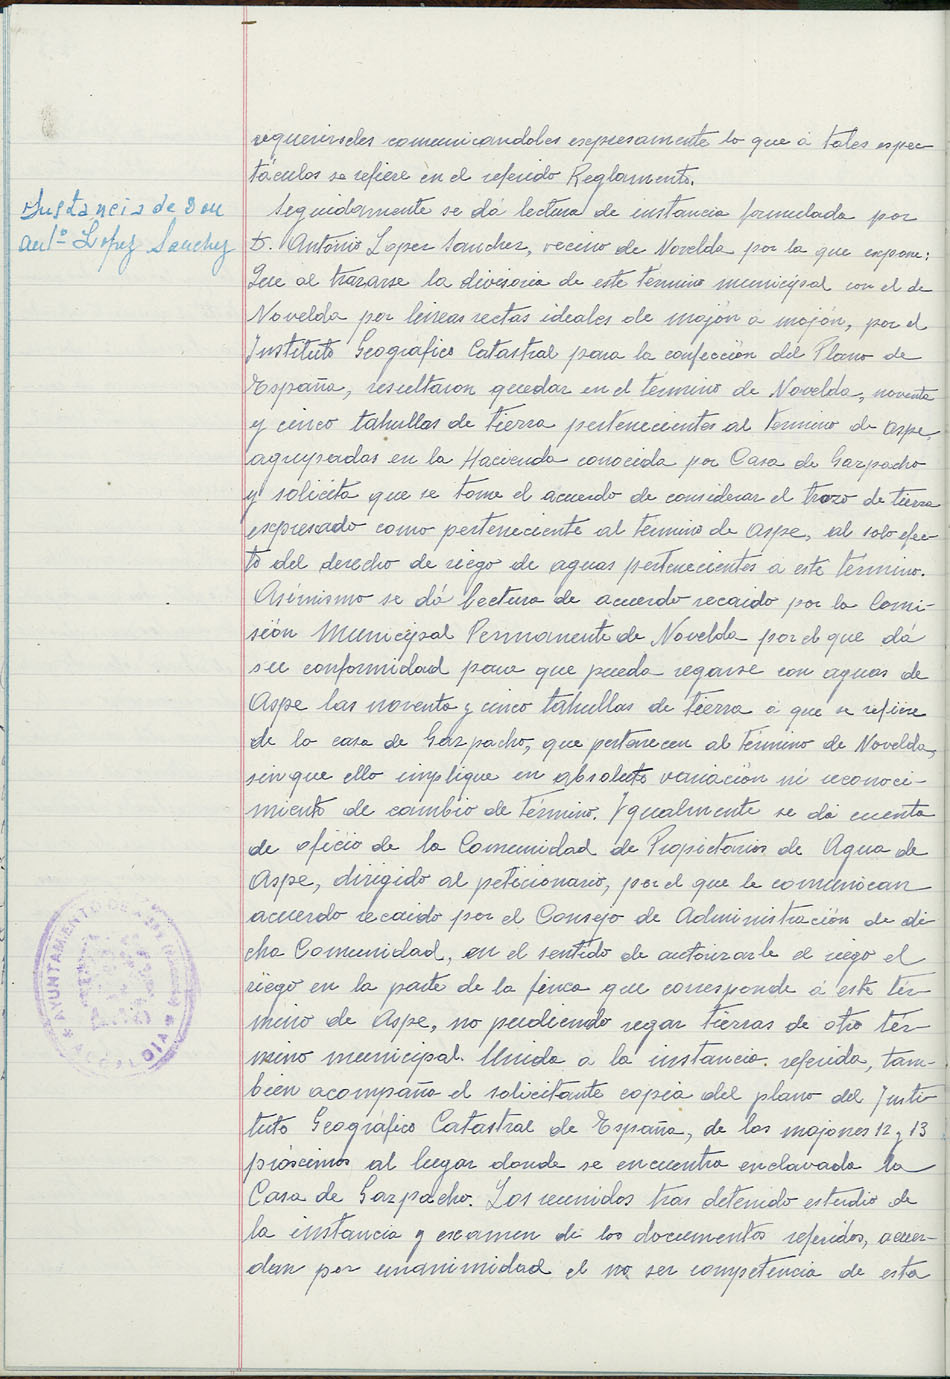 requerirseles comunicandoles expresamente lo que a tales espec-
táculos se refiere en el referido Reglamento.
Instancia de Don
Antº Lopez Sanchez
Seguidamente se dá lectura de instancia formulada por
D. Antonio Lopez Sanchez, vecino de Novelda por la que expone:
Que al trazarse la divisoria de este término municipal con el de
Novelda por lineas rectas ideales de mojón a mojón, por el
Instituto Geográfico Catastral para la confección del Plano de
España, resultaron quedar en el término de Novelda, noventa
y cinco tahullas de tierra pertenecientes al término de Aspe,
agrupadas en la Hacienda conocida por Casa de Garpacho
y solicita que se tome el acuerdo de considerar el trozo de tierra
expresado como perteneciente al término de Aspe, al solo efec-
to del derecho de riego de aguas pertenecientes a este término.
Asimismo se dá lectura de acuerdo recaido por la Comi-
sión Municipal Permanente de Novelda por el que dá
su conformidad para que pueda regarse con aguas de
Aspe las noventa y cinco tahullas de tierra a que se refiere
de la casa de Garpacho, que pertenecen al término de Novelda,
sin que ello implique en absoluto variación ni reconoci-
miento de cambio de término. Igualmente se dá cuenta
de oficio de la Comunidad de Propietarios de Agua de
Aspe, dirigido al peticionario, por el que le comunican
acuerdo recaido por el Consejo de Administración de di-
cha Comunidad, en el sentido de autorizarle el riego el
riego en la parte de la finca que corresponde á este tér-
mino de Aspe, no pudiendo regar tierras de otro tér-
mino municipal. Unida a la instancia referida, tam-
bién acompaña el solicitante copia del plano del Insti-
tuto Geográfico Catastral de España, de los mojones 12 y 13
próximos al lugar donde se encuentra enclavada la
Casa de Garpacho. Los reunidos tras detenido estudio de
la instancia y examen de los documentos referidos, acuer-
dan por unanimidad el no ser competencia de esta
AYUNTAMIENTO DE ASPE (Alicante)
ALCALDIA